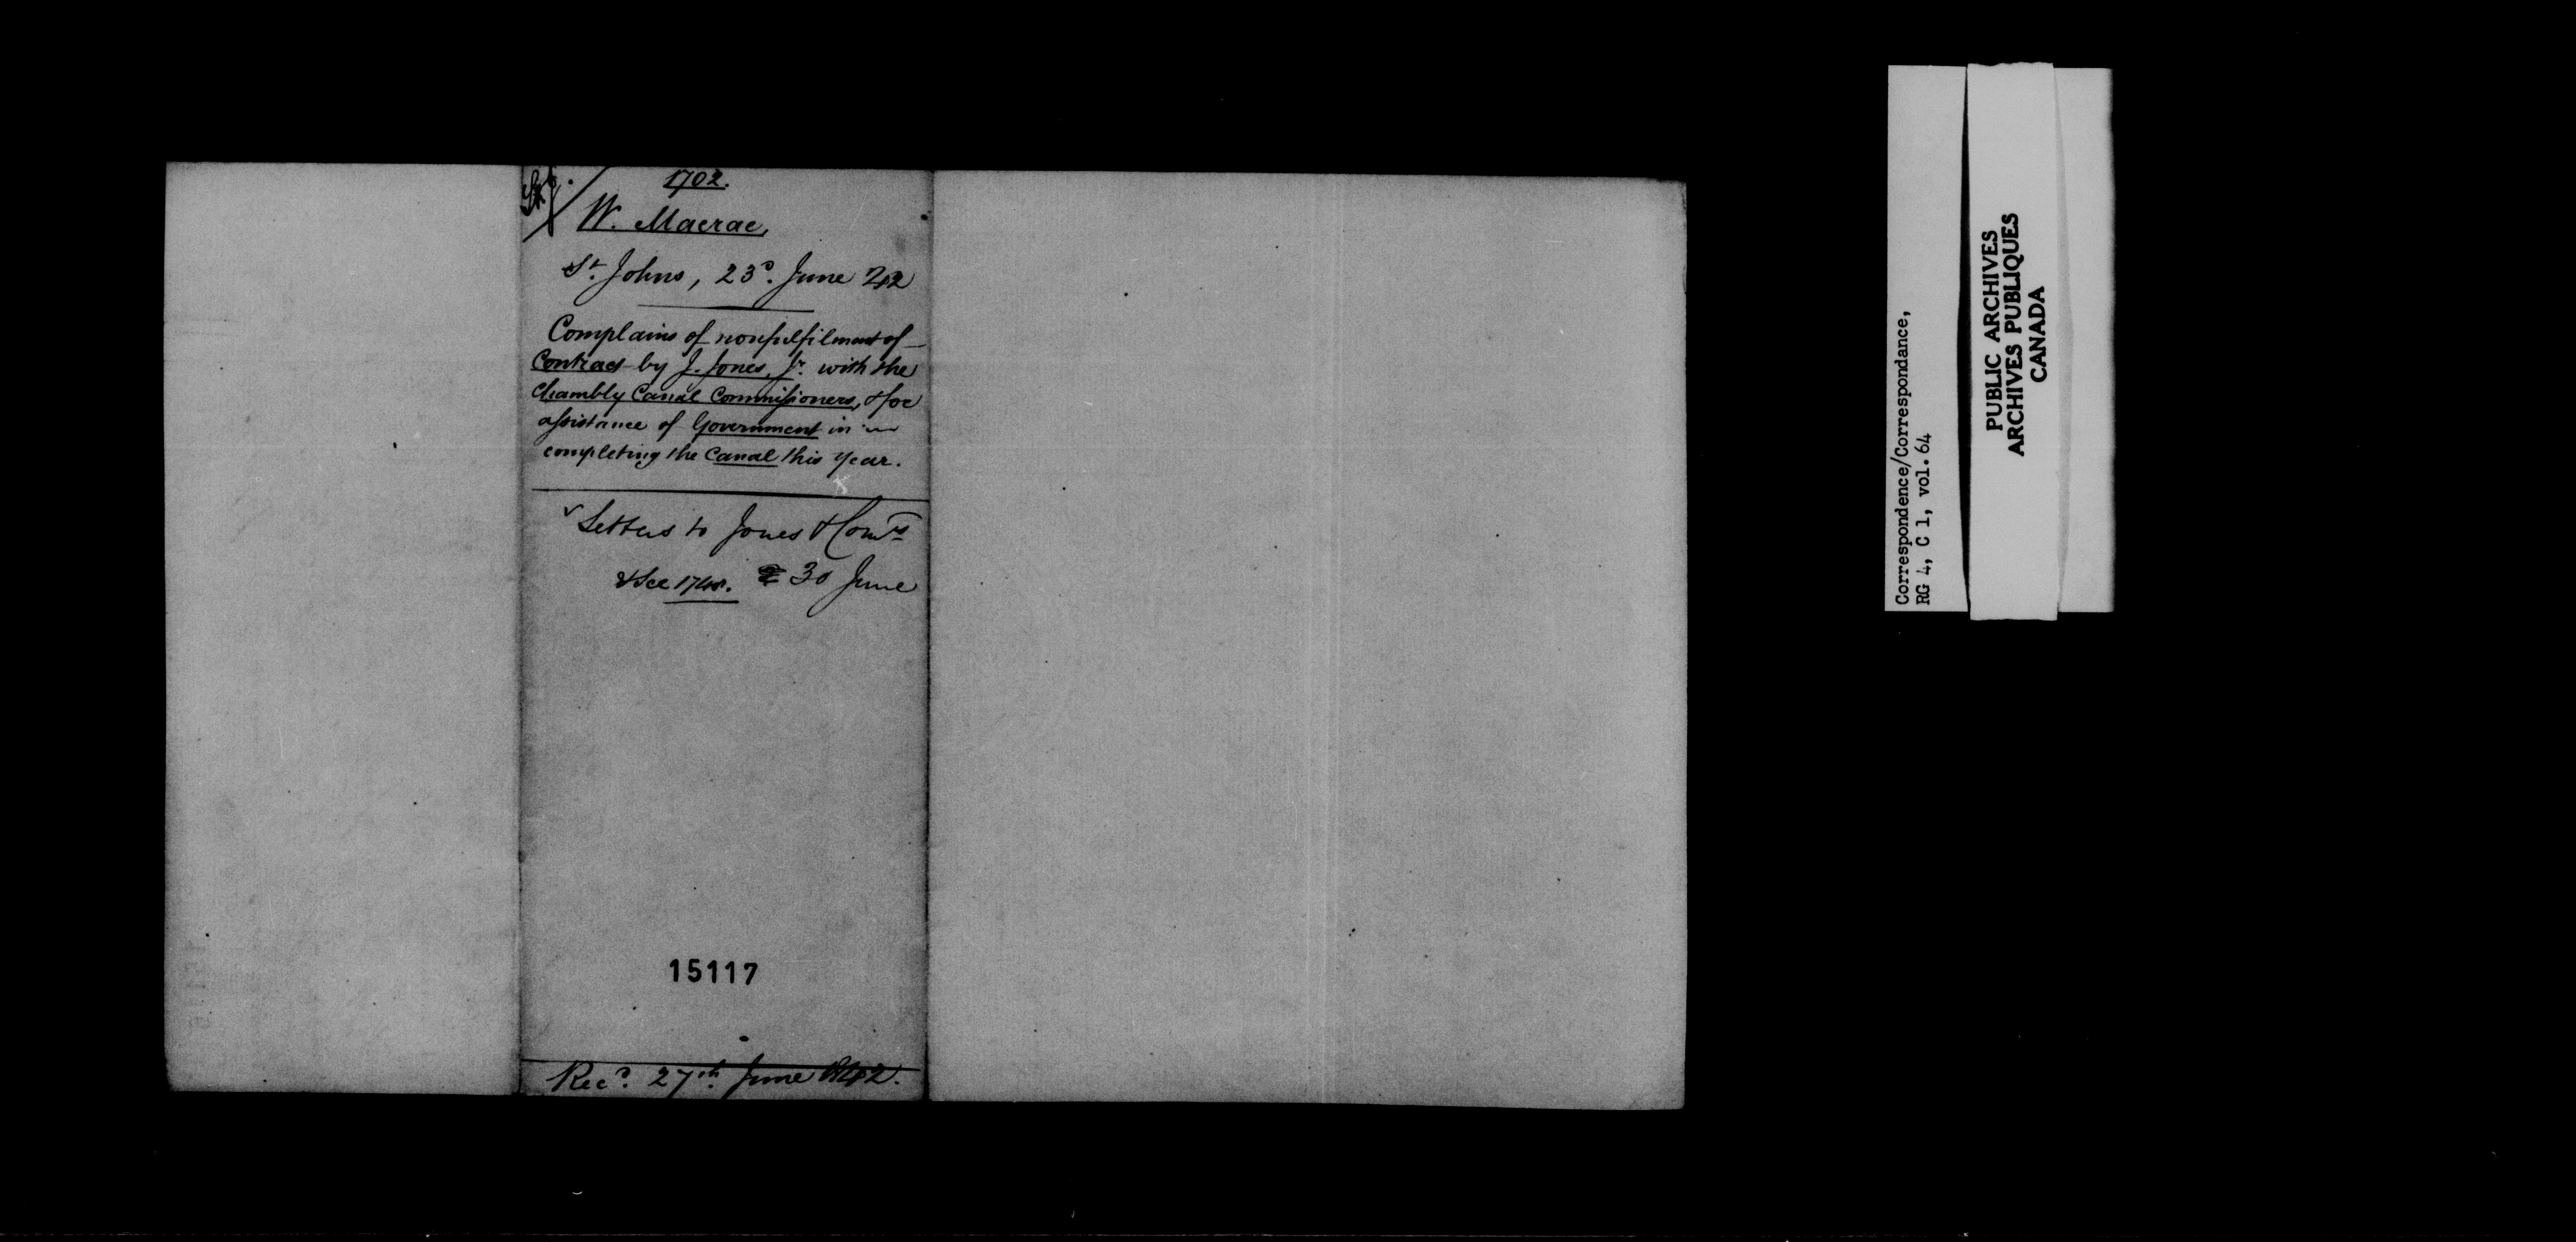 1702.
W. Macrae,
St. Johns, 23d. June 42
Complains of nonfulfilment of
Contract by J. Jones, Jr. with the
Chambly Canal Commissioners, & for
assistance of Government in
completing the Canal this year.
Letters to Jones & Comrs
30 June
& See 1748.
15117
Recd. 27th. June 1842.
Correspondence/Correspondance,
RG 4, C 1, vol. 64
PUBLIC ARCHIVES
ARCHIVES PUBLIQUES
CANADA